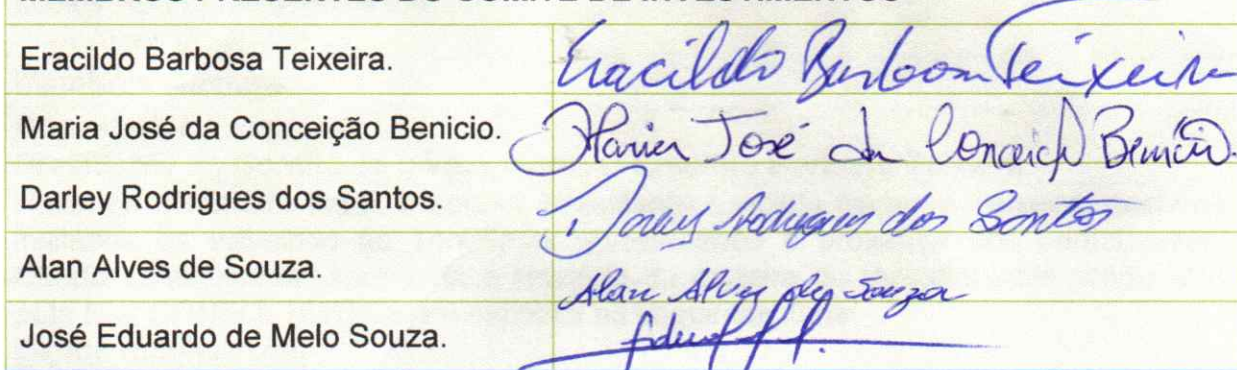 MEMBROS PRESENTES DO COMITÊ DE INVESTIMENTOS
Eracildo Barbosa Teixeira. Eracildo Barbosa Teixeira
Maria José da Conceição Benicio. Maria José da Conceição Benicio.
Darley Rodrigues dos Santos. Darley Rodrigues dos Santos
Alan Alves de Souza. Alan Alves de Souza
José Eduardo de Melo Souza.